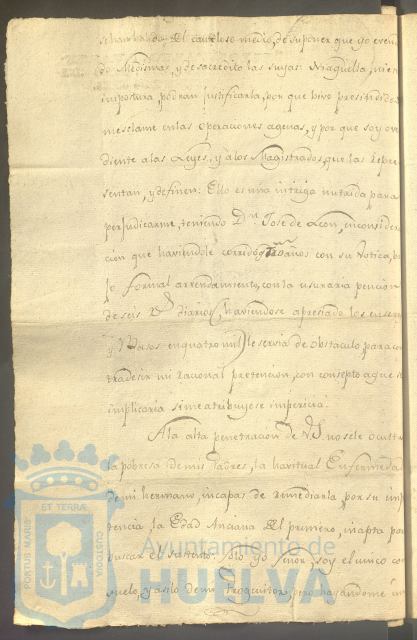 se han balido del cauteloso medio, de suponer que yo
do Medisinas, y desacredito las suyas: Ni aquella, ni en
impostura, podran justificarla, por que vivo presindido
mesclame en las operaciones agenas, y por que soy ove
diente a las Leyes, y a los Magistrados, que las Repre
sentan, y definen: Ello es una intriga nutrida para
perjudicarme, teniendo Dn. José de Leon, en consider
cion que haviendole corrido años con su Votica,
lo formal arrendamiento, con la usuraria pencion
de seis Rs diarios, haviendose apresiado los
y Vasos en quatro mil, le servia de obstaculo para con
tradesir mi racional pretencion, con consepto a que
implicaria si me atribuyese impericia.
A la alta penetracion de V.S. no se le oculta
la pobresa de mis Padres, la havitual Enfermedad
de mi hermano, incapas de remediarla, por su imp
tencia, la Edad Anciana del primero, inapta par
buscar el sustento. Solo yo Señor soy el unico con
suelo, y asilo de mis Progenitores, pero hayandome
PORTUS MARIS
ET TERRÆ
CUSTODIA
Ayuntamiento de
HUELVA